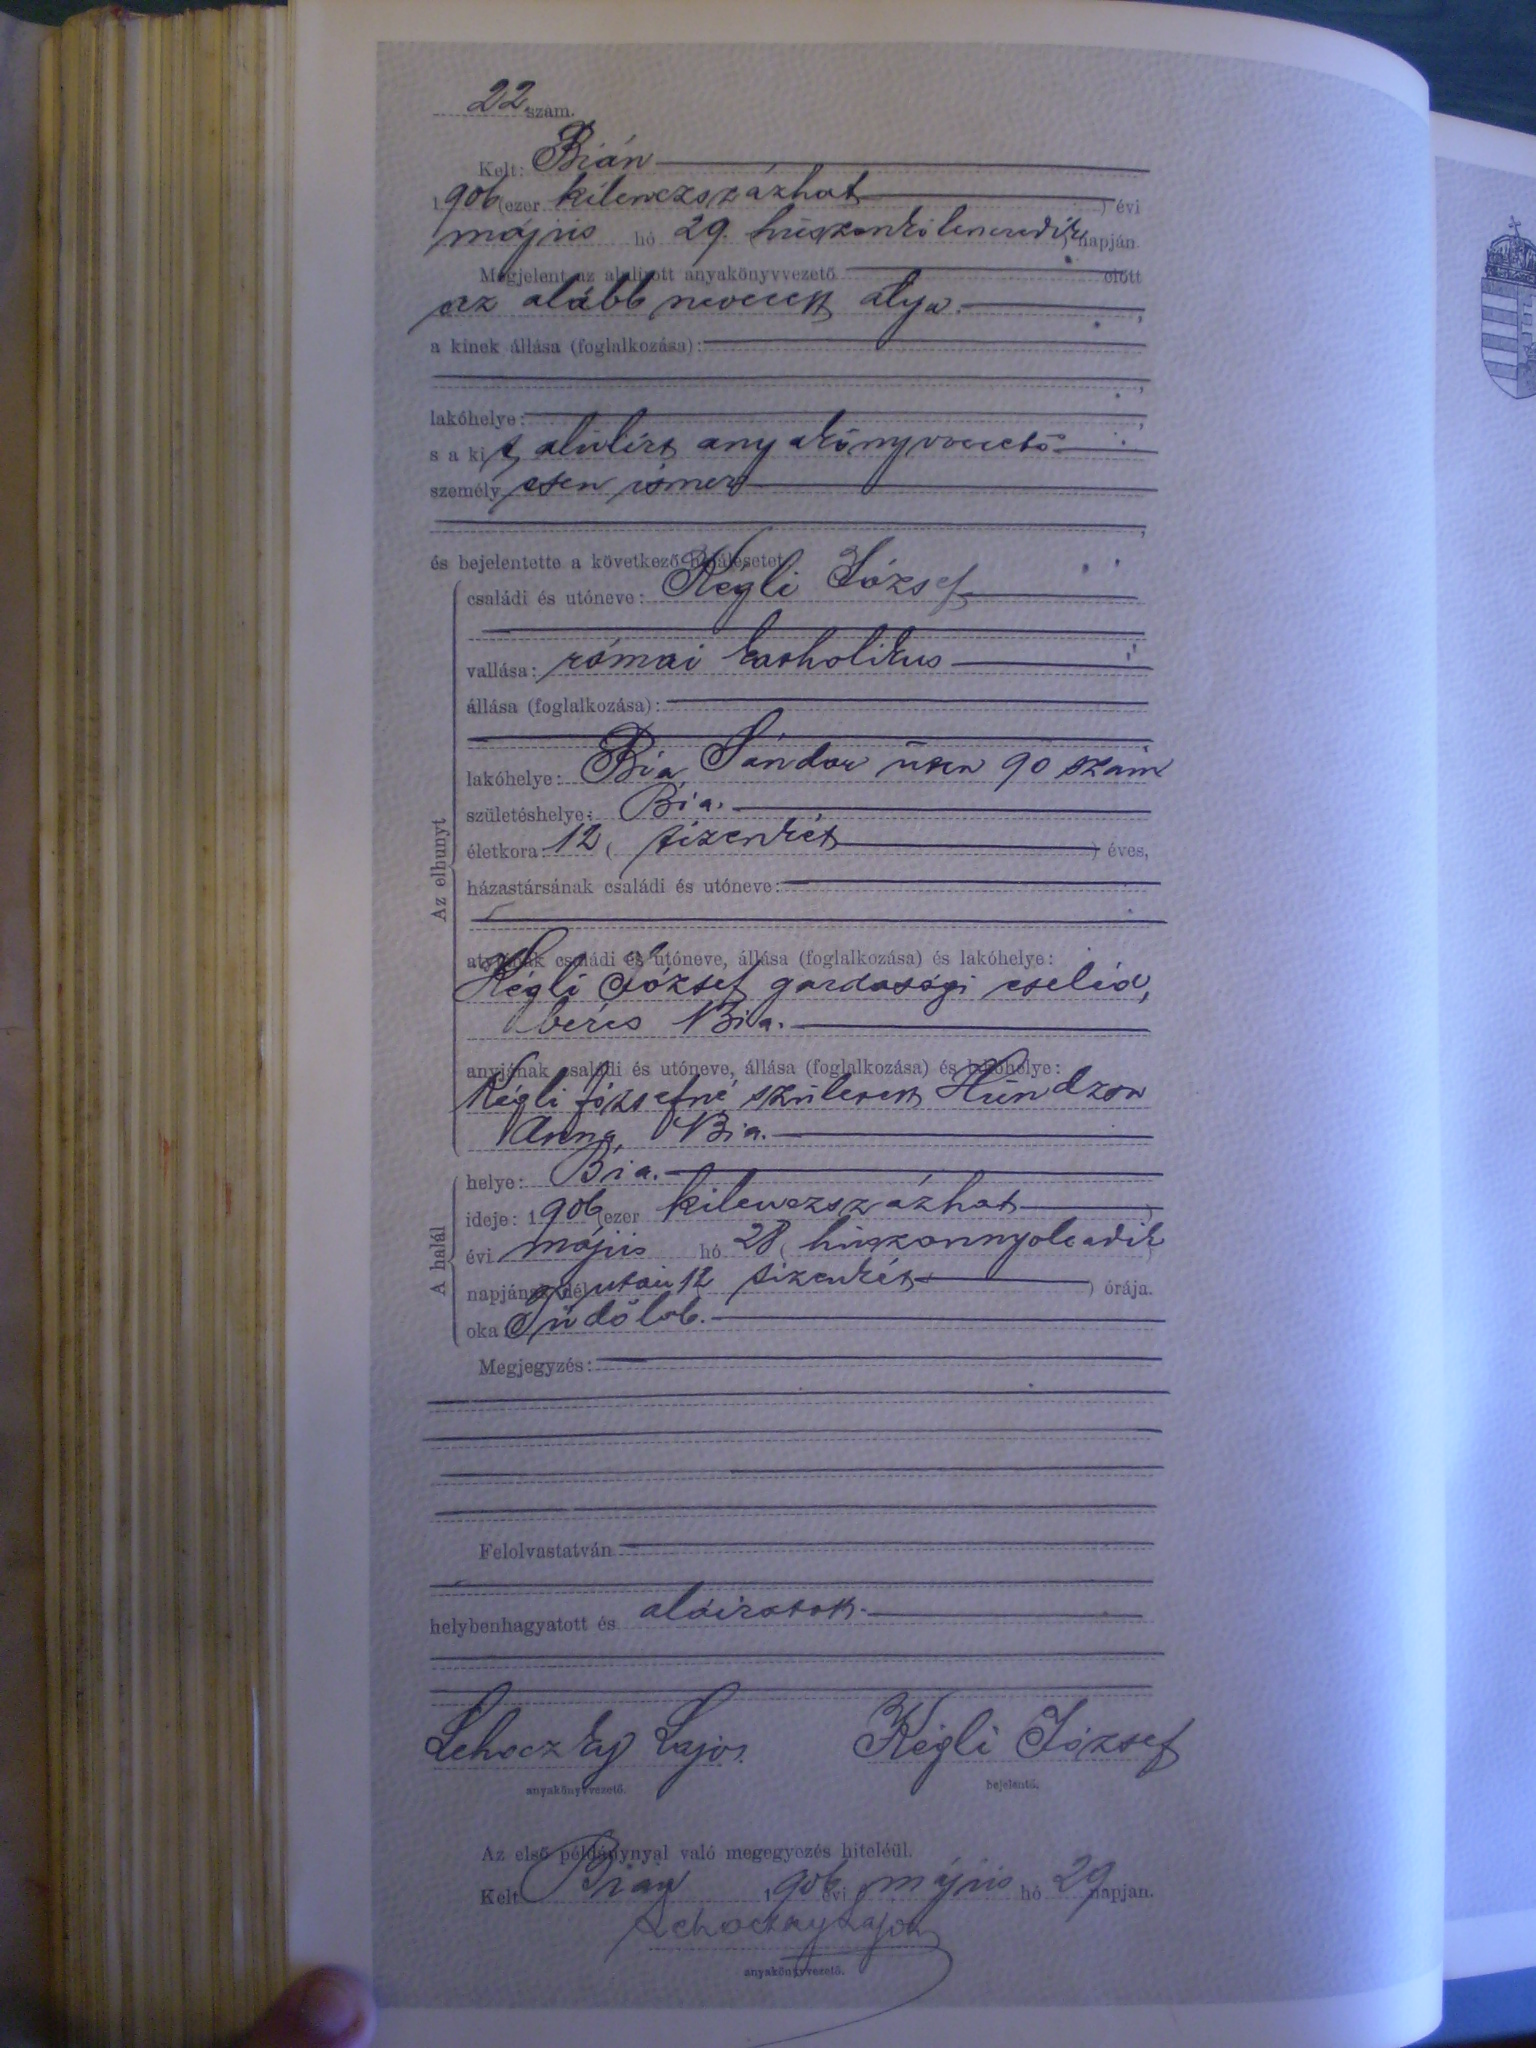 22 szám.
Kelt: Bián
1906 (ezer kilenczszázhat ) évi
május hó 29. huszonkilenczedik ) napján
Megjelent az alulirott anyakönyvvezető előtt
az alább nevezett atya.
a kinek állása (foglalkozása):
lakóhelye:
s a kit alulírt anyakönyvvezető
személyesen ismer
és bejelentette a következő halálesetet
Az elhunyt
családi és utóneve: Kégli József
vallása: római katholikus
állása (foglalkozása):
lakóhelye: Bia, Sándor utca 90 szám
születéshelye: Bia.
életkora: 12 ( tizenkét ) éves,
házastársának családi és utóneve:
atyjának családi és utóneve, állása (foglalkozása) és lakóhelye:
Kégli József gazdasági cseléd,
béres Bia.
anyjának családi és utóneve, állása (foglalkozása) és lakóhelye:
Kégli Józsefné született
Anna, Bia.
A halál
helye: Bia.
ideje: 1906 (ezer kilenczszázhat )
évi május hó 28 ( huszonnyolcadik )
napjának dél után 12 tizenkét ) órája.
oka: Tüdőlob.
Megjegyzés:
Felolvastatván
helybenhagyatott és aláiratott.
Lehoczky Lajos. Kégli József
anyakönyvvezető. bejelentő.
Az első példánynyal való megegyezés hiteléül.
Kelt Bián 1906 évi május hó 29 napján.
Lehoczky Lajos
anyakönyvvezető.